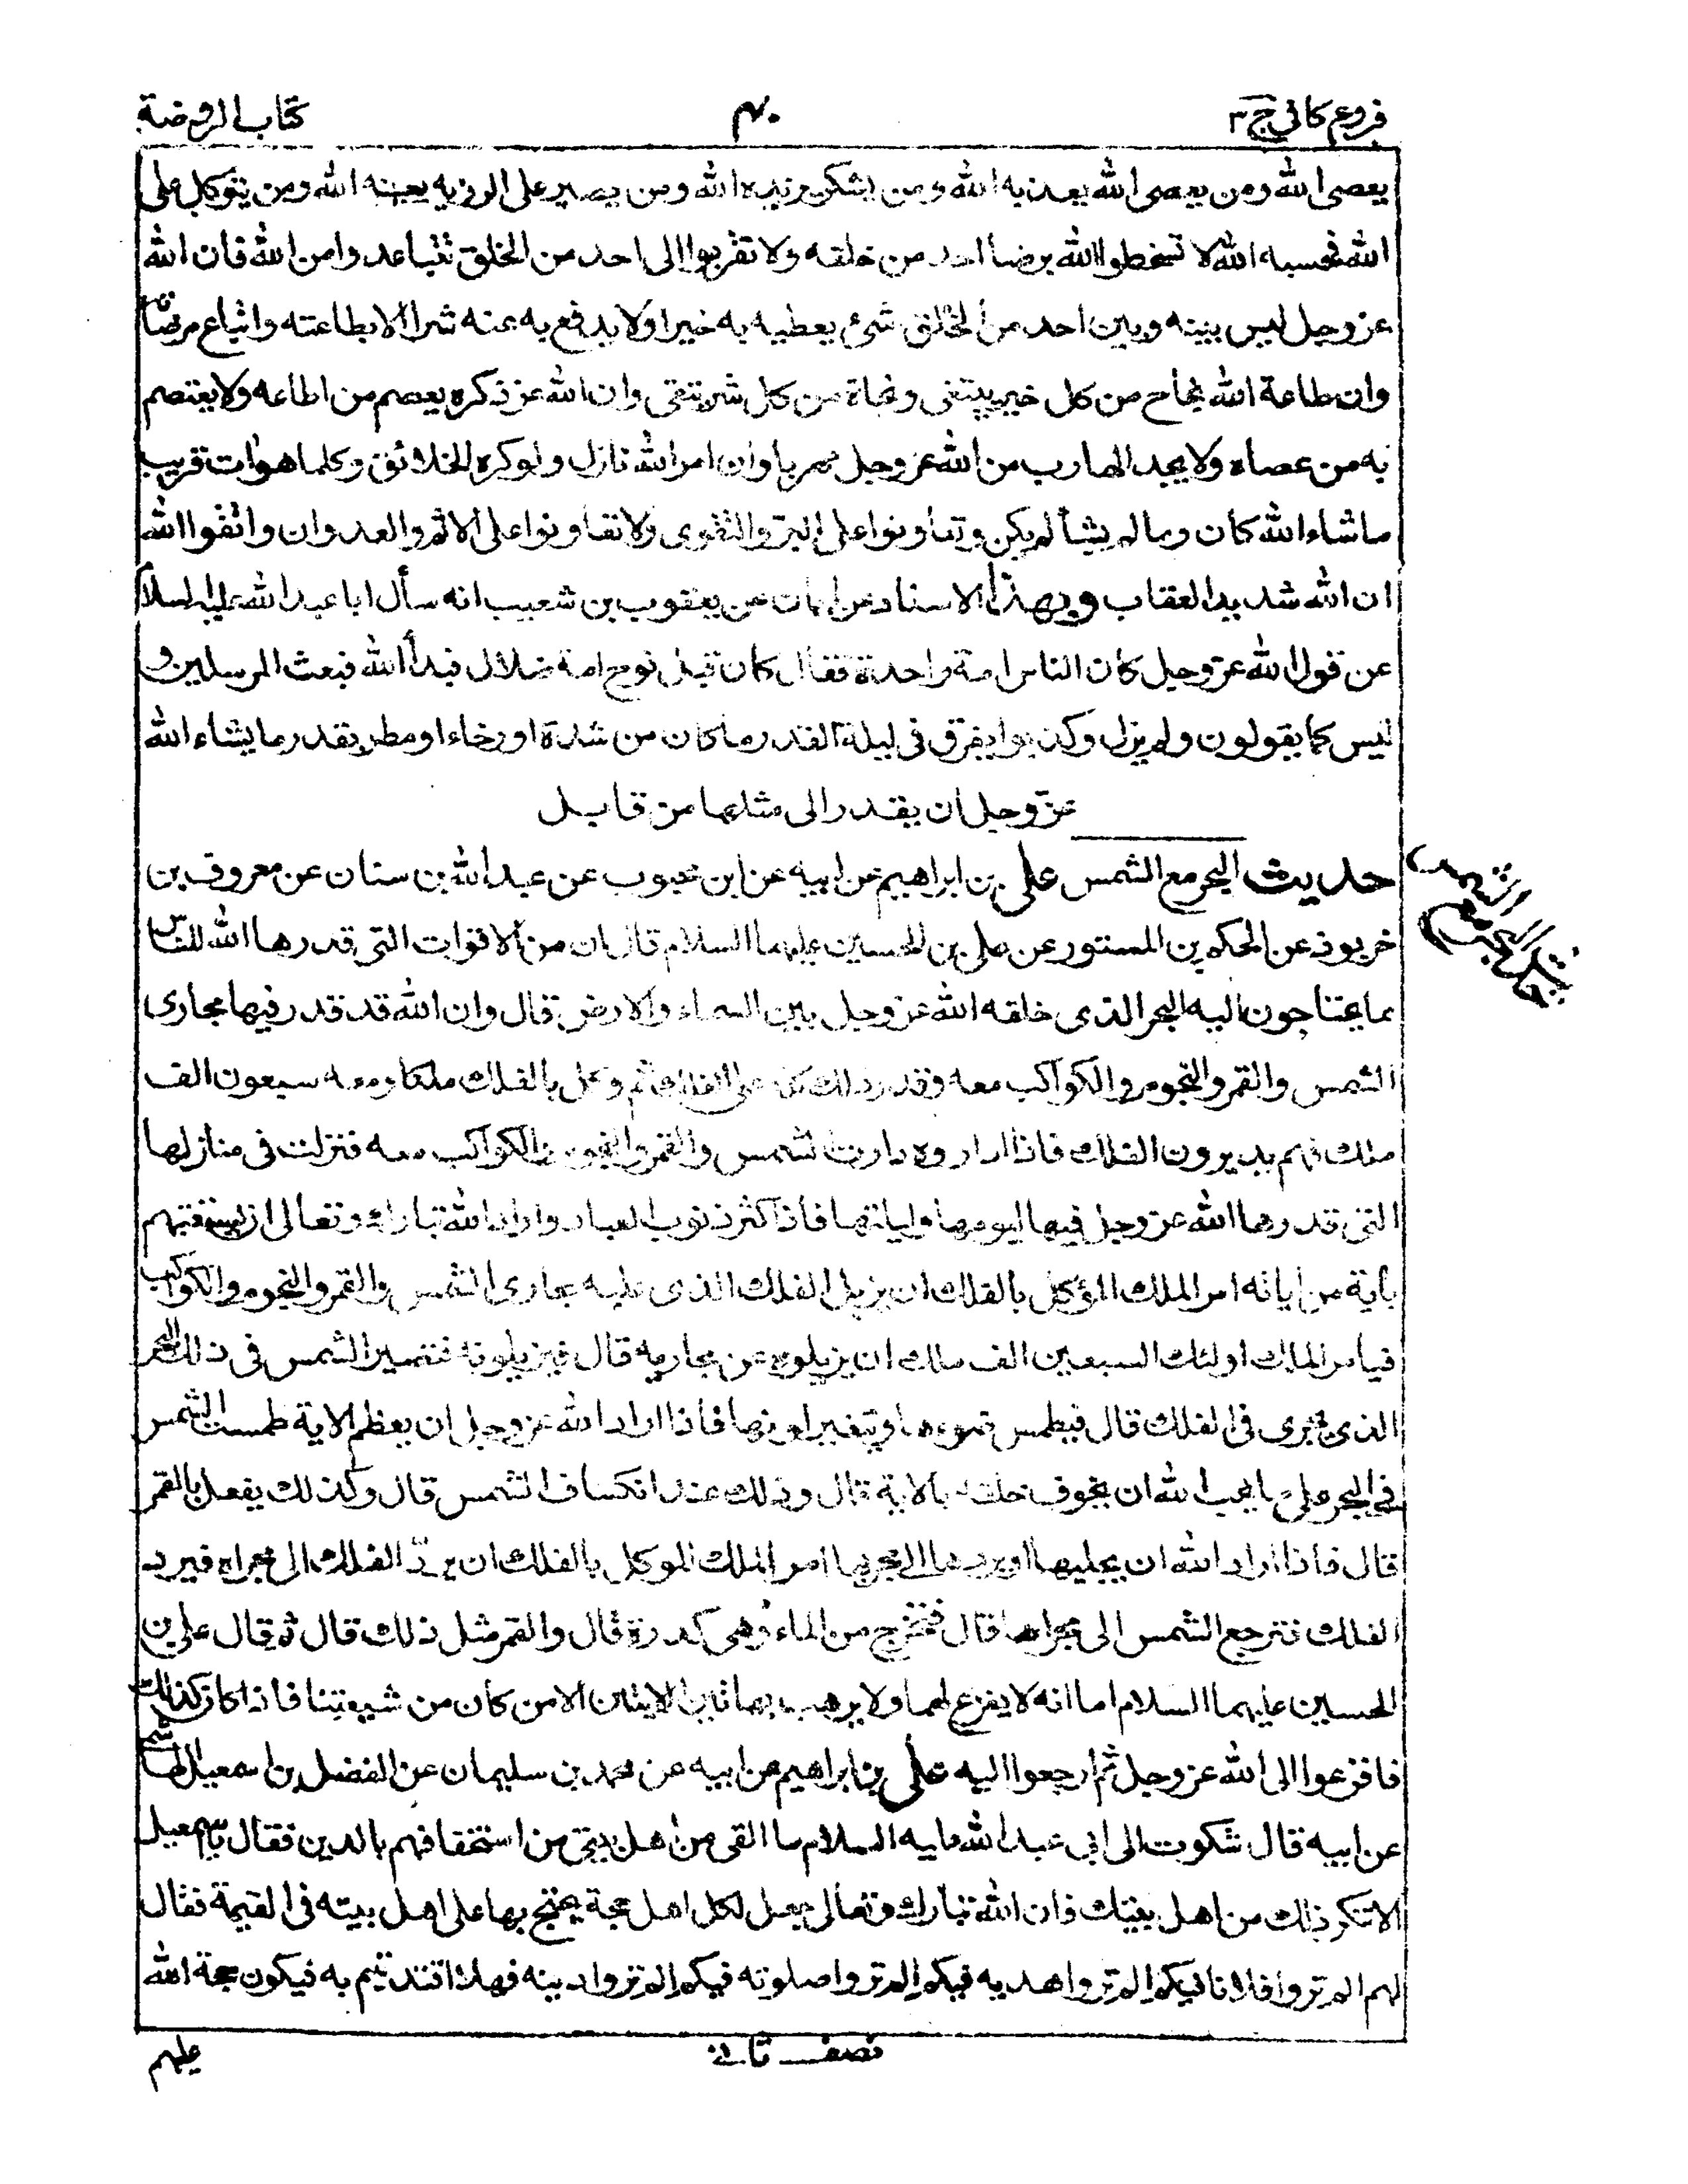 فروع كافي ج ٣
٤٠
كتاب الروضة
يعصى الله ومن يعصى الله يعذبه الله ومن يشكر يزيده الله ومن يصبر على الرزيه يعينه الله ومن يتوكل على
الله فحسبه الله لا تسخطوا الله برضا احد من خلقه ولا تقربوا الى احد من الخلق تتباعدوا من الله فان الله
عز وجل ليس بينه وبين احد من الخلق شئ يعطيه به خيرا ولا يدفع به عنه شرا الا بطاعته واتباع مرضاته
وان طاعة الله نجاح من كل خير يبتغى ونجاة من كل شر يتقى وان الله عز ذكره يعصم من اطاعه ولا يعتصم
به من عصاه ولا يجد الهارب من الله عز وجل مهربا وان امر الله نازل ولو كره الخلائق وكلما هو ات قريب
ما شاء الله كان وما لم يشأ لم يكن وتعاونوا على البر والتقوى ولا تعاونوا على الاثم والعدوان واتقوا الله
ان الله شديد العقاب وبهذا الاسناد عن ابان عن يعقوب بن شعيب انه سأل ابا عبد الله عليه السلام
عن قول الله عز وجل كان الناس امة واحدة فقال كان قبل نوح امة ضلال فبدأ الله فبعث المرسلين و
ليس كما يقولون ولم يزل وكذبوا يفرق في ليلة القدر ما كان من شدة او رخاء او مطر بقدر ما يشاء الله
عز وجل ان يقدر الى مثلها من قابل
حديث البحر مع الشمس علي بن ابراهيم عن ابيه عن ابن محبوب عن عبد الله بن سنان عن معروف بن
حديث البحر مع الشمس
خربوذ عن الحكم بن المستور عن علي بن الحسين عليهما السلام قال ان من الاقوات التي قدرها الله للناس
مما يحتاجون اليه البحر الذى خلقه الله عز وجل بين السماء والارض قال وان الله قد قدر فيها مجارى
الشمس والقمر والنجوم والكواكب معه وقدر ذلك كله على الفلك ثم وكل بالفلك ملكا ومعه سبعون الف
ملك فهم يديرون الفلك فاذا اداروه دارت الشمس والقمر والنجوم والكواكب معه فنزلت في منازلها
التى قدرها الله عز وجل فيها ليومها وليلتها فاذا كثر ذنوب العباد واراد الله تبارك وتعالى ان يستعتبهم
بأية من اياته امر الملك المؤكل بالفلك ان يزيل الفلك الذى عليه مجارى الشمس والقمر والنجوم والكواكب
فيامر الملك اولئك السبعين الف ملك ان يزيلوه عن مجاريه قال فيزيلونه فتصير الشمس في ذلك البحر
الذى يجرى في الفلك قال فيطمس ضوءها ويتغير لونها فاذا اراد الله عز وجل ان يعظم الاية طمست الشمس
في البحر على ما يحب الله ان يخوف خلقه بالاية قال وذلك عند انكساف الشمس قال وكذلك يفعل بالقمر
قال فاذا اراد الله ان يجليها او يردها الى مجريها امر الملك الموكل بالفلك ان يردّ الفلك الى مجراه فيرد
الفلك فترجع الشمس الى مجراها قال فتخرج من الماء وهي كدرة قال والقمر مثل ذلك قال ثم قال علي بن
الحسين عليهما السلام اما انه لا يفزع لهما ولا يرهب بهاتين الايتين الا من كان من شيعتنا فاذا كان كذلك
فافزعوا الى الله عز وجل ثم ارجعوا اليه علي بن ابراهيم عن ابيه عن محمد بن سليمان عن الفضل بن اسمعيل الهاشمي
عن ابيه قال شكوت الى ابي عبد الله عليه السلام ما القى من اهل بيتي من استخفافهم بالدين فقال يا اسمعيل
لا تنكر ذلك من اهل بيتك فان الله تبارك وتعالى جعل لكل اهل بيت حجة يحتج بها على اهل بيته في القيمة فقال
لهم الم تروا فلانا فيكم الم تروا هديه فيكم الم تروا صلوته فيكم الم تروا دينه فهلا اقتديتم به فيكون حجة الله
نصف ثاني
عليهم